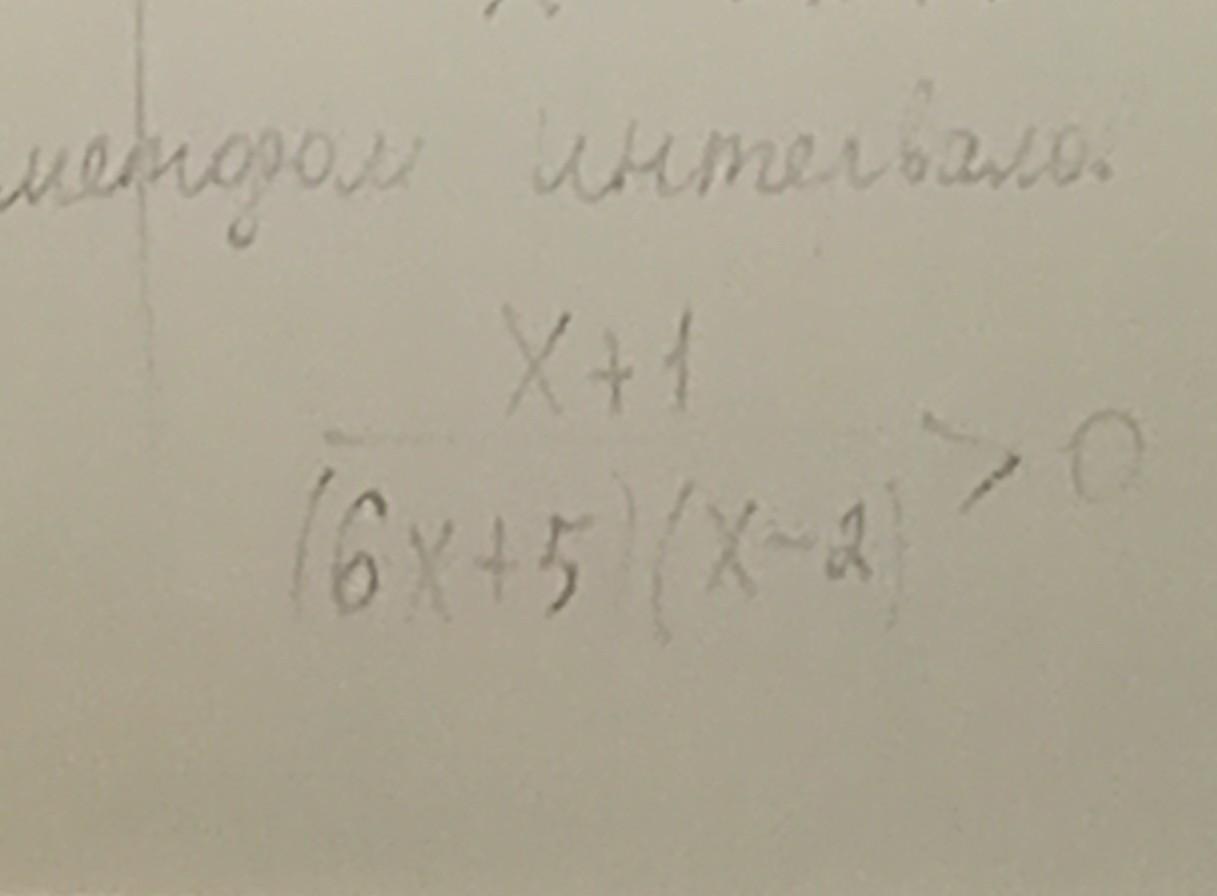 методом интервала.
x+1
(6x+5)(x-2) > 0